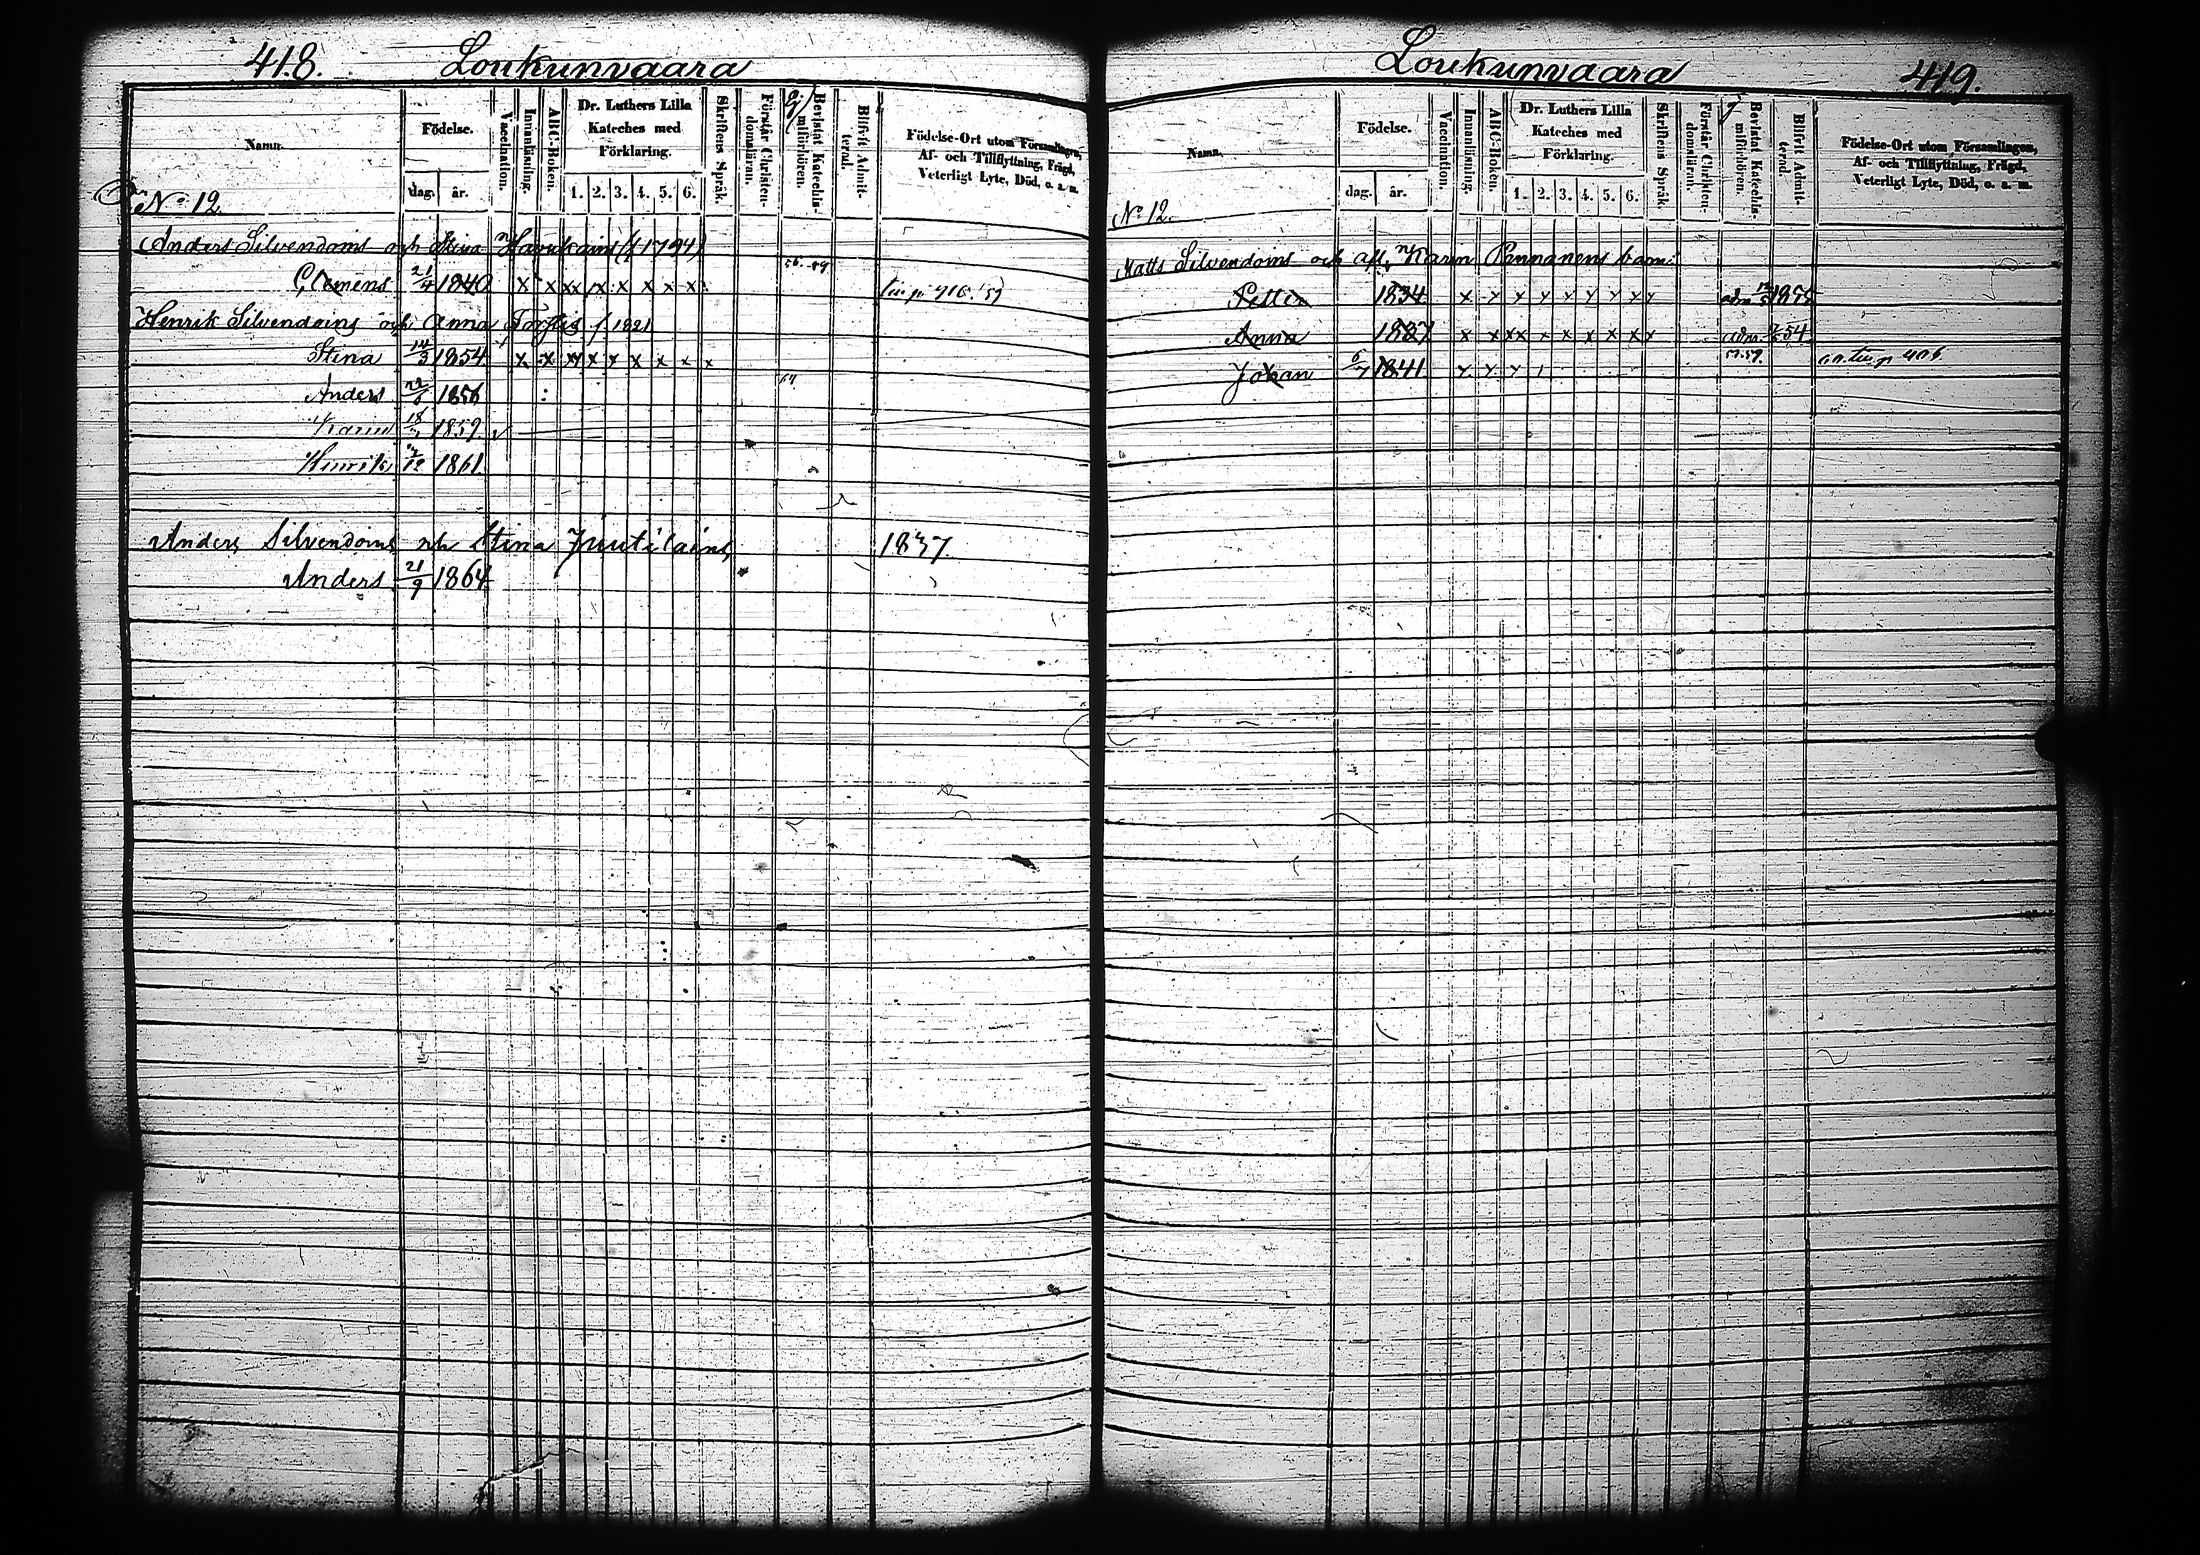 418. Loukunvaara
Namn. Födelse. Vaccination. Innanläsning. ABC-Boken. Dr. Luthers Lilla Kateches med Förklaring. Skriftens Språk. Förstår Christendomsläran. Bevistat Katechismiförhören. Blifvit Admitterad. Födelse-Ort utom Församlingen, Af- och Tillflyttning, Frägd, Veterligt Lyte, Död, o. s. m.
dag. år. 1. 2. 3. 4. 5. 6.
No 12.
Anders Silvendoins och Stina Havukains (f 1794)
Clemens 21/4 1840 x x xx x x x x x x 56. 59 tin p 416. 59
Henrik Silvendoins och Anna f 1821
Stina 14/3 1854. x x xx x x x x x x
Anders 1856
Karin 1859.
Henrik 1861
Anders Silvendoins och Stina Juutilains 1837
Anders 21/9 1864
Loukunvaara 419.
Namn. Födelse. Vaccination. Innanläsning. ABC-Boken. Dr. Luthers Lilla Kateches med Förklaring. Skriftens Språk. Förstår Christendomsläran. Bevistat Katechismiförhören. Blifvit Admitterad. Födelse-Ort utom Församlingen, Af- och Tillflyttning, Frägd, Veterligt Lyte, Död, o. s. m.
dag. år. 1. 2. 3. 4. 5. 6.
No 12.
Matts Silvendoins och afl. Karin Pennanens barn:
Petter 1834 x x x x x x x x x adm.
Anna 1837 x x xx x x x x x x adm. 54.
Johan 6/7 1841 x x x 57. 59. tin p 406